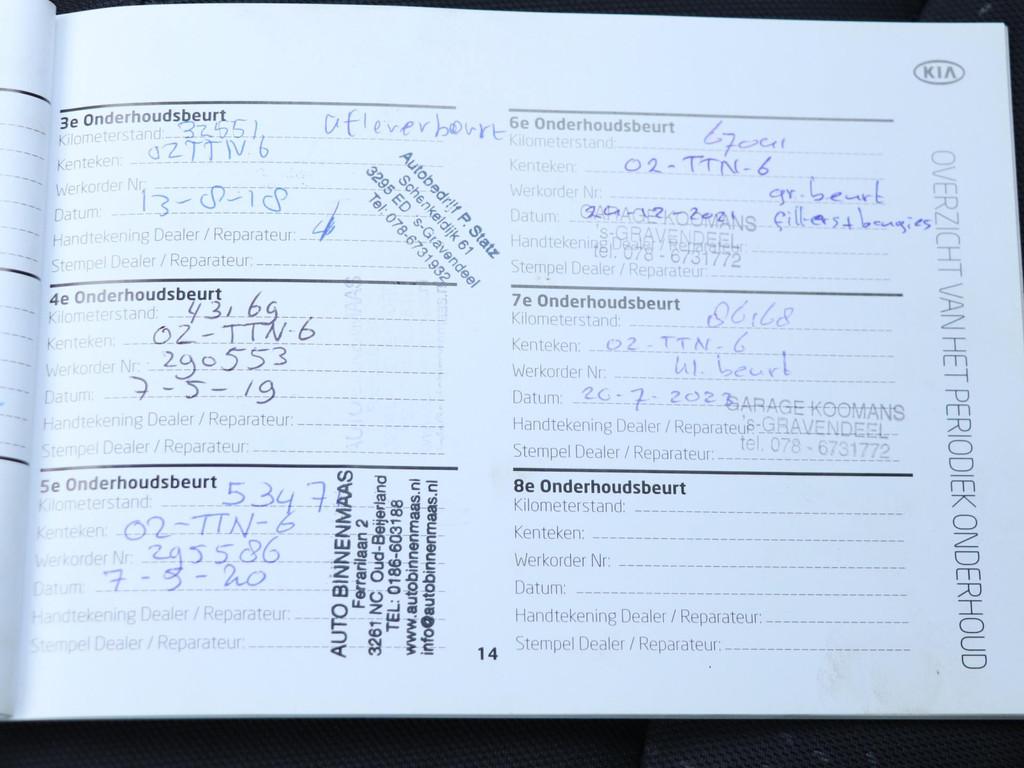 KIA
3e Onderhoudsbeurt
afleverbeurt
Kilometerstand: 32551
Kenteken: 02TTN6
Werkorder Nr:
Datum: 13-8-18
Handtekening Dealer / Reparateur:
Stempel Dealer / Reparateur:
Autobedrijf P. Statz
Schenkeldijk 61
3295 ED 's-Gravendeel
Tel. 078-6731932
4e Onderhoudsbeurt
Kilometerstand: 43169
Kenteken: 02-TTN-6
Werkorder Nr: 290553
Datum: 7-5-19
Handtekening Dealer / Reparateur:
Stempel Dealer / Reparateur:
5e Onderhoudsbeurt
Kilometerstand: 5347
Kenteken: 02-TTN-6
Werkorder Nr: 295586
Datum: 7-9-20
Handtekening Dealer / Reparateur:
Stempel Dealer / Reparateur:
AUTO BINNENMAAS
Ferrarilaan 2
3261 NC Oud-Beijerland
TEL: 0186-603188
www.autobinnenmaas.nl
info@autobinnenmaas.nl
14
6e Onderhoudsbeurt
Kilometerstand:
Kenteken: 02-TTN-6
Werkorder Nr: gr. beurt
Datum: filters + bougies
Handtekening Dealer / Reparateur:
Stempel Dealer / Reparateur:
GARAGE KOOMANS
's-GRAVENDEEL
tel. 078 - 6731772
7e Onderhoudsbeurt
Kilometerstand: 86168
Kenteken: 02-TTN-6
Werkorder Nr: kl. beurt
Datum: 20-7-2023
Handtekening Dealer / Reparateur:
Stempel Dealer / Reparateur:
GARAGE KOOMANS
's-GRAVENDEEL
tel. 078 - 6731772
8e Onderhoudsbeurt
Kilometerstand:
Kenteken:
Werkorder Nr:
Datum:
Handtekening Dealer / Reparateur:
Stempel Dealer / Reparateur:
OVERZICHT VAN HET PERIODIEK ONDERHOUD